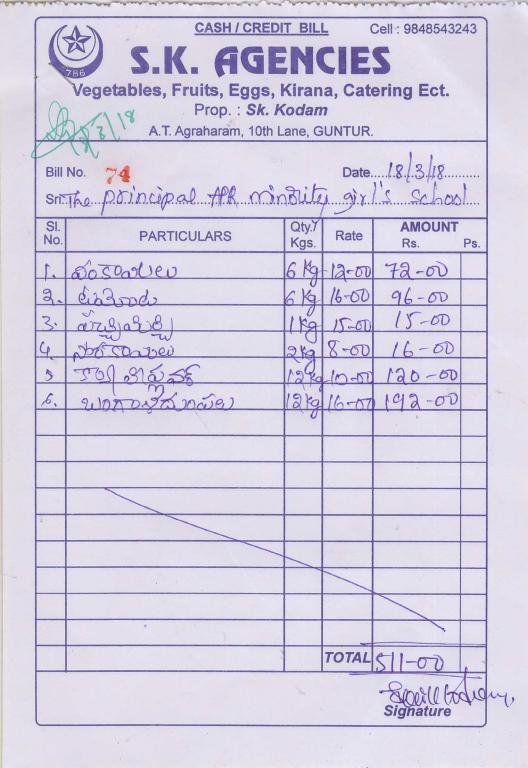 CASH / CREDIT BILL Cell : 9848543243
786
S.K. AGENCIES
Vegetables, Fruits, Eggs, Kirana, Catering Ect.
Prop. : Sk. Kodam
A.T. Agraharam, 10th Lane, GUNTUR.
18/3/18
Bill No. 74 Date 18/3/18
Sri The principal APR minority girl's school
Sl. No. PARTICULARS Qty./ Kgs. Rate AMOUNT Rs. Ps.
1. వంకాయలు 6 Kg 12-00 72-00
2. టమోటా 6 Kg 16-00 96-00
3. పచ్చిమిర్చి 1 Kg 15-00 15-00
4. సొరకాయలు 2 Kg 8-00 16-00
5 కాలిఫ్లవర్ 12 Kg 10-00 120-00
6. బంగాళదుంపలు 12 Kg 16-00 192-00
TOTAL 511-00
Signature